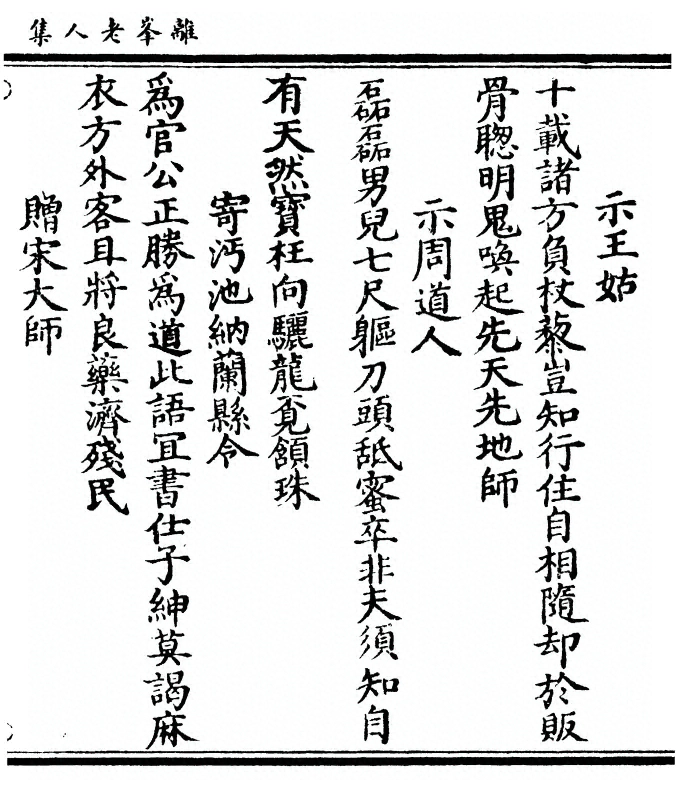 離峯老人集
示王姑
十載諸方負杖藜豈知行住自相隨却於販
骨聰明鬼喚起先天先地師
示周道人
磊磊男兒七尺軀刀頭舐蜜卒非夫須知自
有天然寶枉向驪龍覓頷珠
寄沔池納蘭縣令
為官公正勝為道此語冝書仕子紳莫謁麻
衣方外客且將良藥濟殘民
贈宋大師